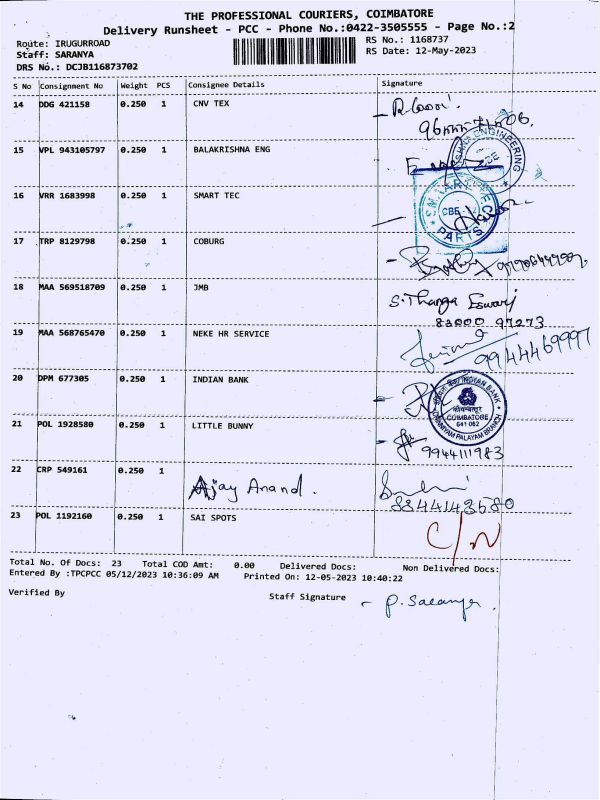 THE PROFESSIONAL COURIERS, COIMBATORE
Delivery Runsheet - PCC - Phone No.:0422-3505555 - Page No.:2
Route: IRUGURROAD
RS No.: 1168737
Staff: SARANYA
RS Date: 12-May-2023
DRS No.: DCJB116873702
S No Consignment No Weight PCS Consignee Details Signature
14 DDG 421158 0.250 1 CNV TEX
15 VPL 943105797 0.250 1 BALAKRISHNA ENG
ENGINEERING
16 VRR 1683998 0.250 1 SMART TEC
CBE
PARTS
17 TRP 8129798 0.250 1 COBURG
18 MAA 569518709 0.250 1 JMB S. Thanga Eswari
83000 97273
19 MAA 568765470 0.250 1 NEKE HR SERVICE
9944469997
20 DPM 677305 0.250 1 INDIAN BANK
INDIAN BANK
COIMBATORE
641 062
21 POL 1928580 0.250 1 LITTLE BUNNY
9944111983
22 CRP 549161 0.250 1
Ajay Anand.
8344143680
23 POL 1192160 0.250 1 SAI SPOTS C/N
Total No. Of Docs: 23 Total COD Amt: 0.00 Delivered Docs: Non Delivered Docs:
Entered By :TPCPCC 05/12/2023 10:36:09 AM Printed On: 12-05-2023 10:40:22
Verified By Staff Signature